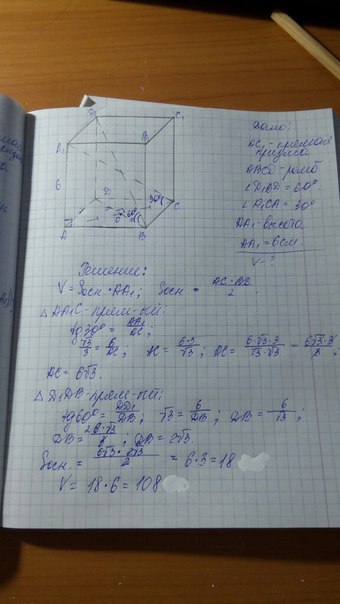 D₁
C₁
A₁
B₁
6
D
30°
60°
C
O
A
B
Дано:
AC₁ - прямая
призма
ABCD - ромб
∠D₁BD = 60°
∠A₁CA = 30°
AA₁ - высота
AA₁ = 6см
V - ?
Решение:
V = Sосн · AA₁; Sосн = AC · BD / 2
△ AA₁C - прям-ый:
tg 30° = AA₁ / AC;
√3 / 3 = 6 / AC; AC = 6·3 / √3; AC = 6·√3·3 / √3·√3 = 6√3·3 / 3;
AC = 6√3.
△ D₁DB - прям-ый:
tg 60° = DD₁ / DB; √3 = 6 / DB; DB = 6 / √3;
DB = 6·√3 / 3; DB = 2√3.
Sосн. = 6√3 · 2√3 / 2 = 6·3 = 18
V = 18 · 6 = 108